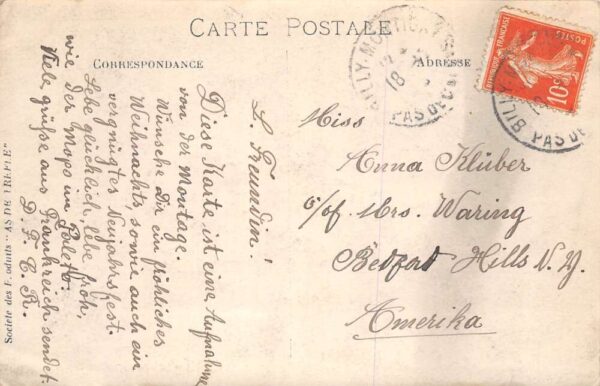 CARTE POSTALE
CORRESPONDANCE
ADRESSE
L. Freundin!
Diese Karte ist eine Aufnahme
von der Montage.
Wünsche Dir ein fröhliches
Weihnachts, sowie auch ein
vergnügtes Neujahrsfest.
Lebe glücklich, lebe froh,
wie der Mops im Paletto.
Viele grüße aus Frankreich sendet
D. F. C. R.
Miss
Anna Klüber
c/of. Mrs. Waring
Bedford Hills N. Y.
Amerika
BILLY-MONTIGNY
18
PAS DE C
10c
BILLY-MO
PAS DE
Société des Produits "AS DE TREFLE"